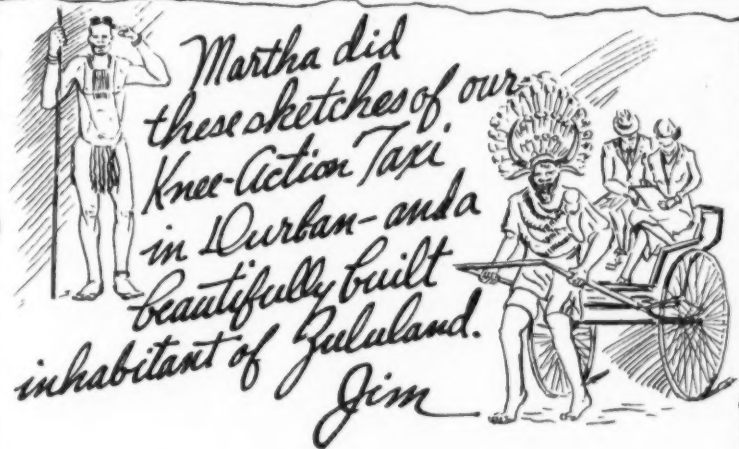 Martha did
these sketches of our
Knee-Action Taxi
in Durban - and a
beautifully built
inhabitant of Zululand.
Jim